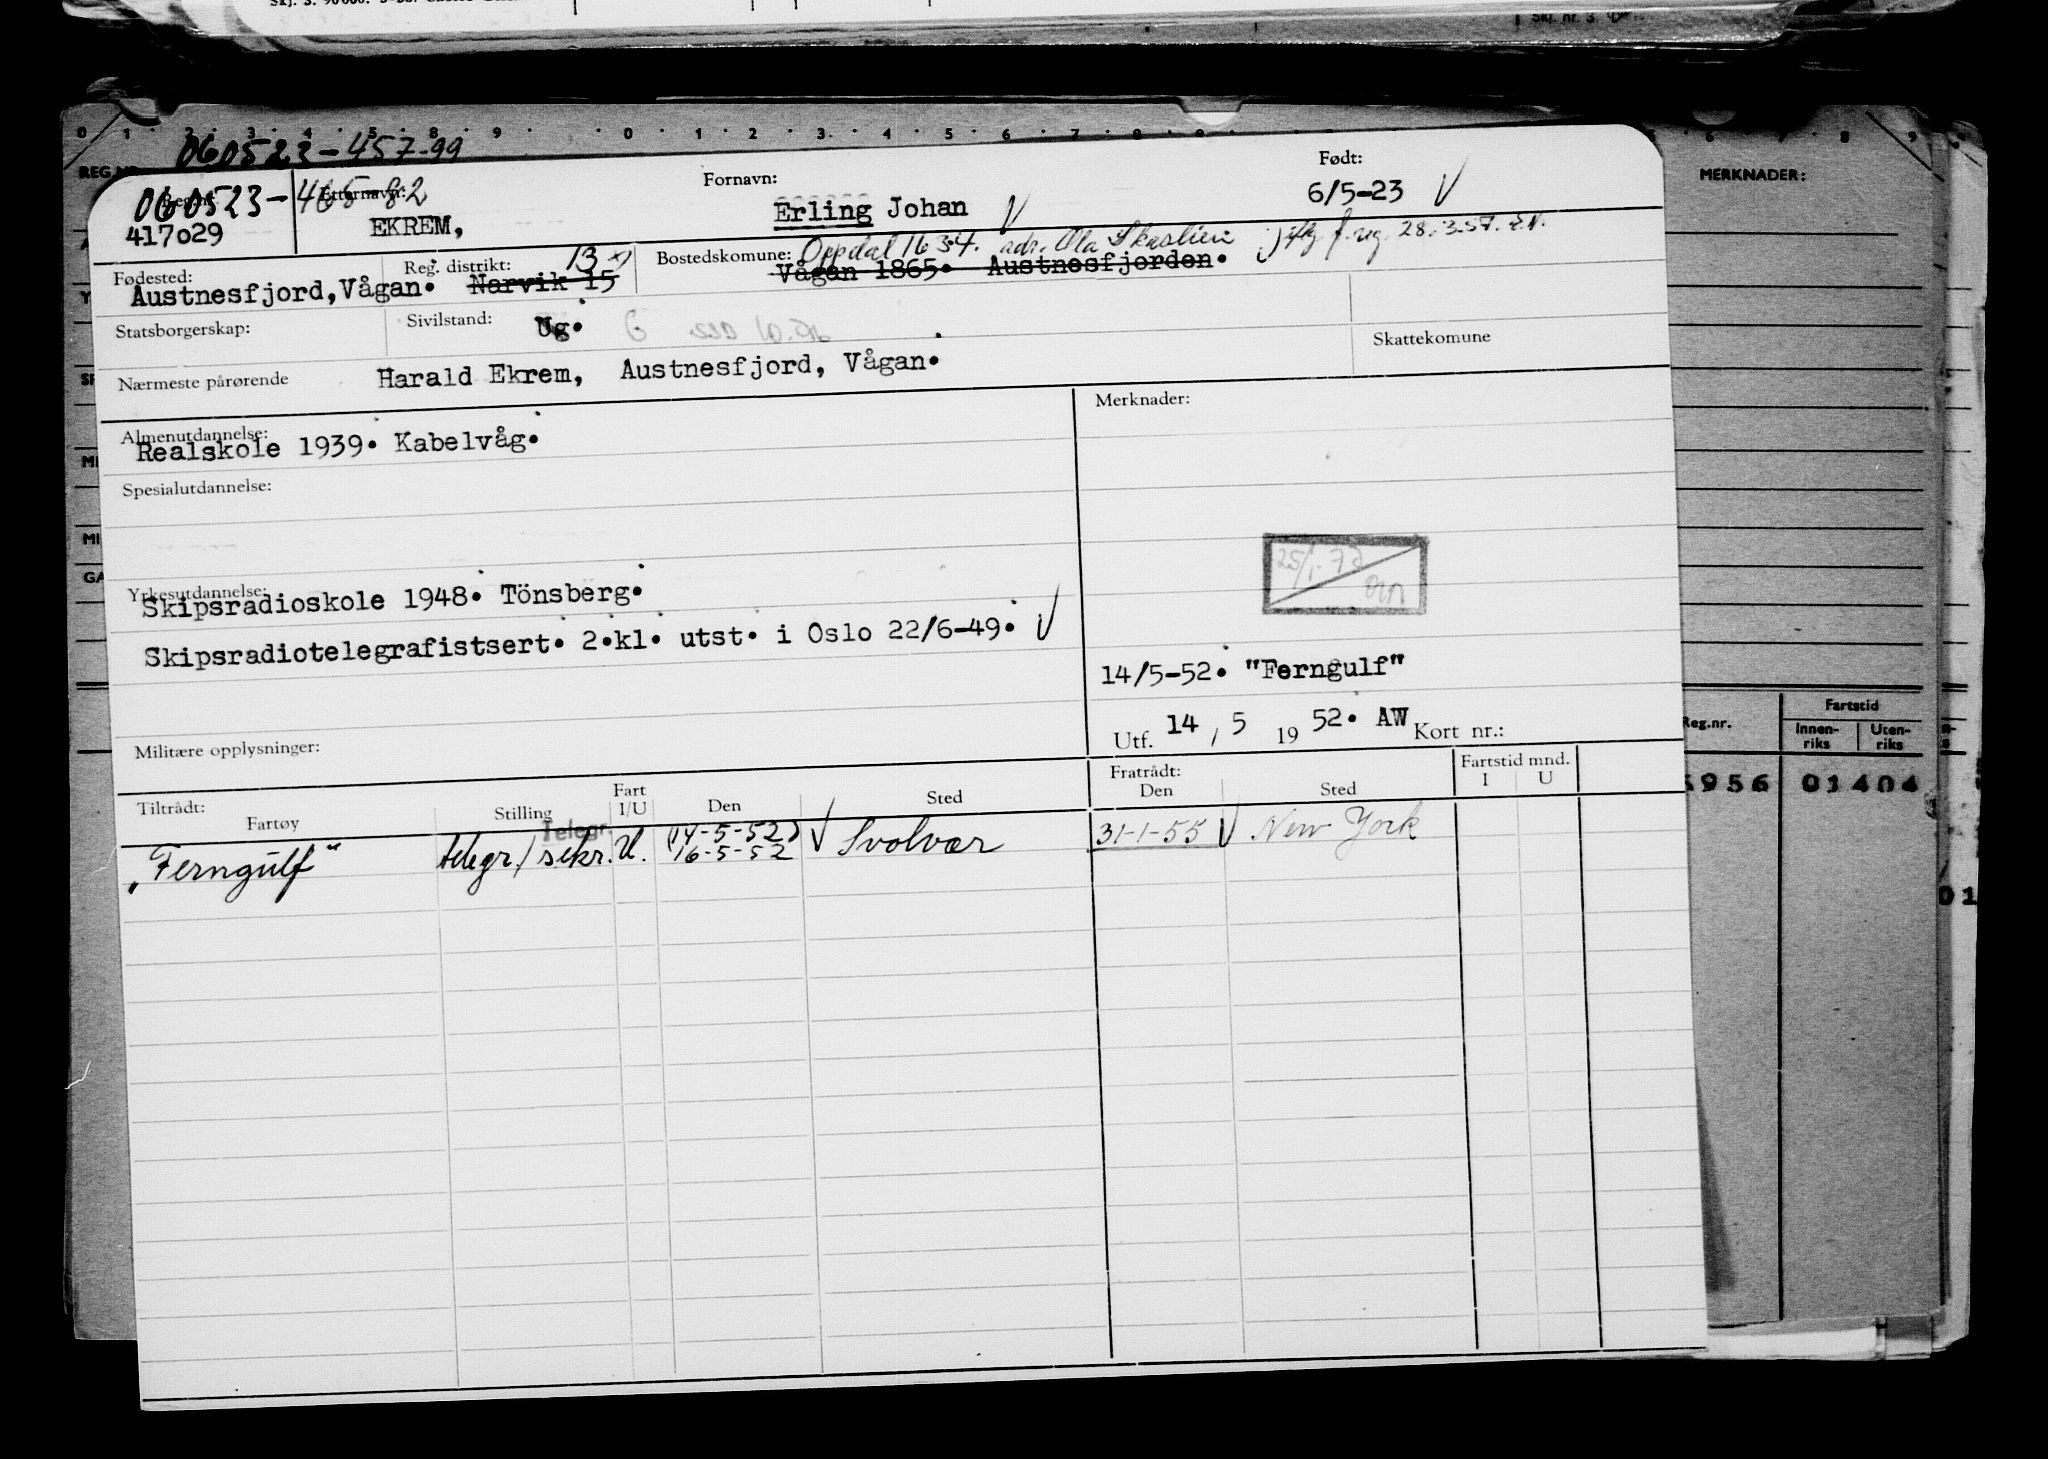 0 1 2 3 4 5 8 9 0 1 2 3 4 5 6 7 8 9
REG.NR. 060523-457-99
MERKNADER:
060523-465-82
417029
Etternavn: EKREM,
Fornavn: Erling Johan
Født: 6/5-23
Fødested: Austnesfjord, Vågan.
Reg. distrikt: Narvik 15 13
Bostedskomune: Oppdal 1634. adr. Ola Skaslien
Vågan 1865. Austnesfjorden.
28.3.57.
Statsborgerskap:
Sivilstand: Ug.
Skattekomune
Nærmeste pårørende Harald Ekrem, Austnesfjord, Vågan.
Almenutdannelse:
Realskole 1939. Kabelvåg.
Merknader:
Spesialutdannelse:
25/1-72
Yrkesutdannelse:
Skipsradioskole 1948. Tönsberg.
Skipsradiotelegrafistsert. 2.kl. utst. i Oslo 22/6-49.
14/5-52. "Ferngulf"
Utf. 14 , 5 19 52. AW Kort nr.:
Militære opplysninger:
Tiltrådt: Fartøy Stilling Fart I/U Den Sted Fratrådt: Den Sted Fartstid mnd. I U
Telegr.
„Ferngulf" telegr./sekr. U. (14-5-52) 16-5-52 Svolvær 31-1-55 New York
Reg.nr. Fartstid Innen-riks Uten-riks
5956 01404
01